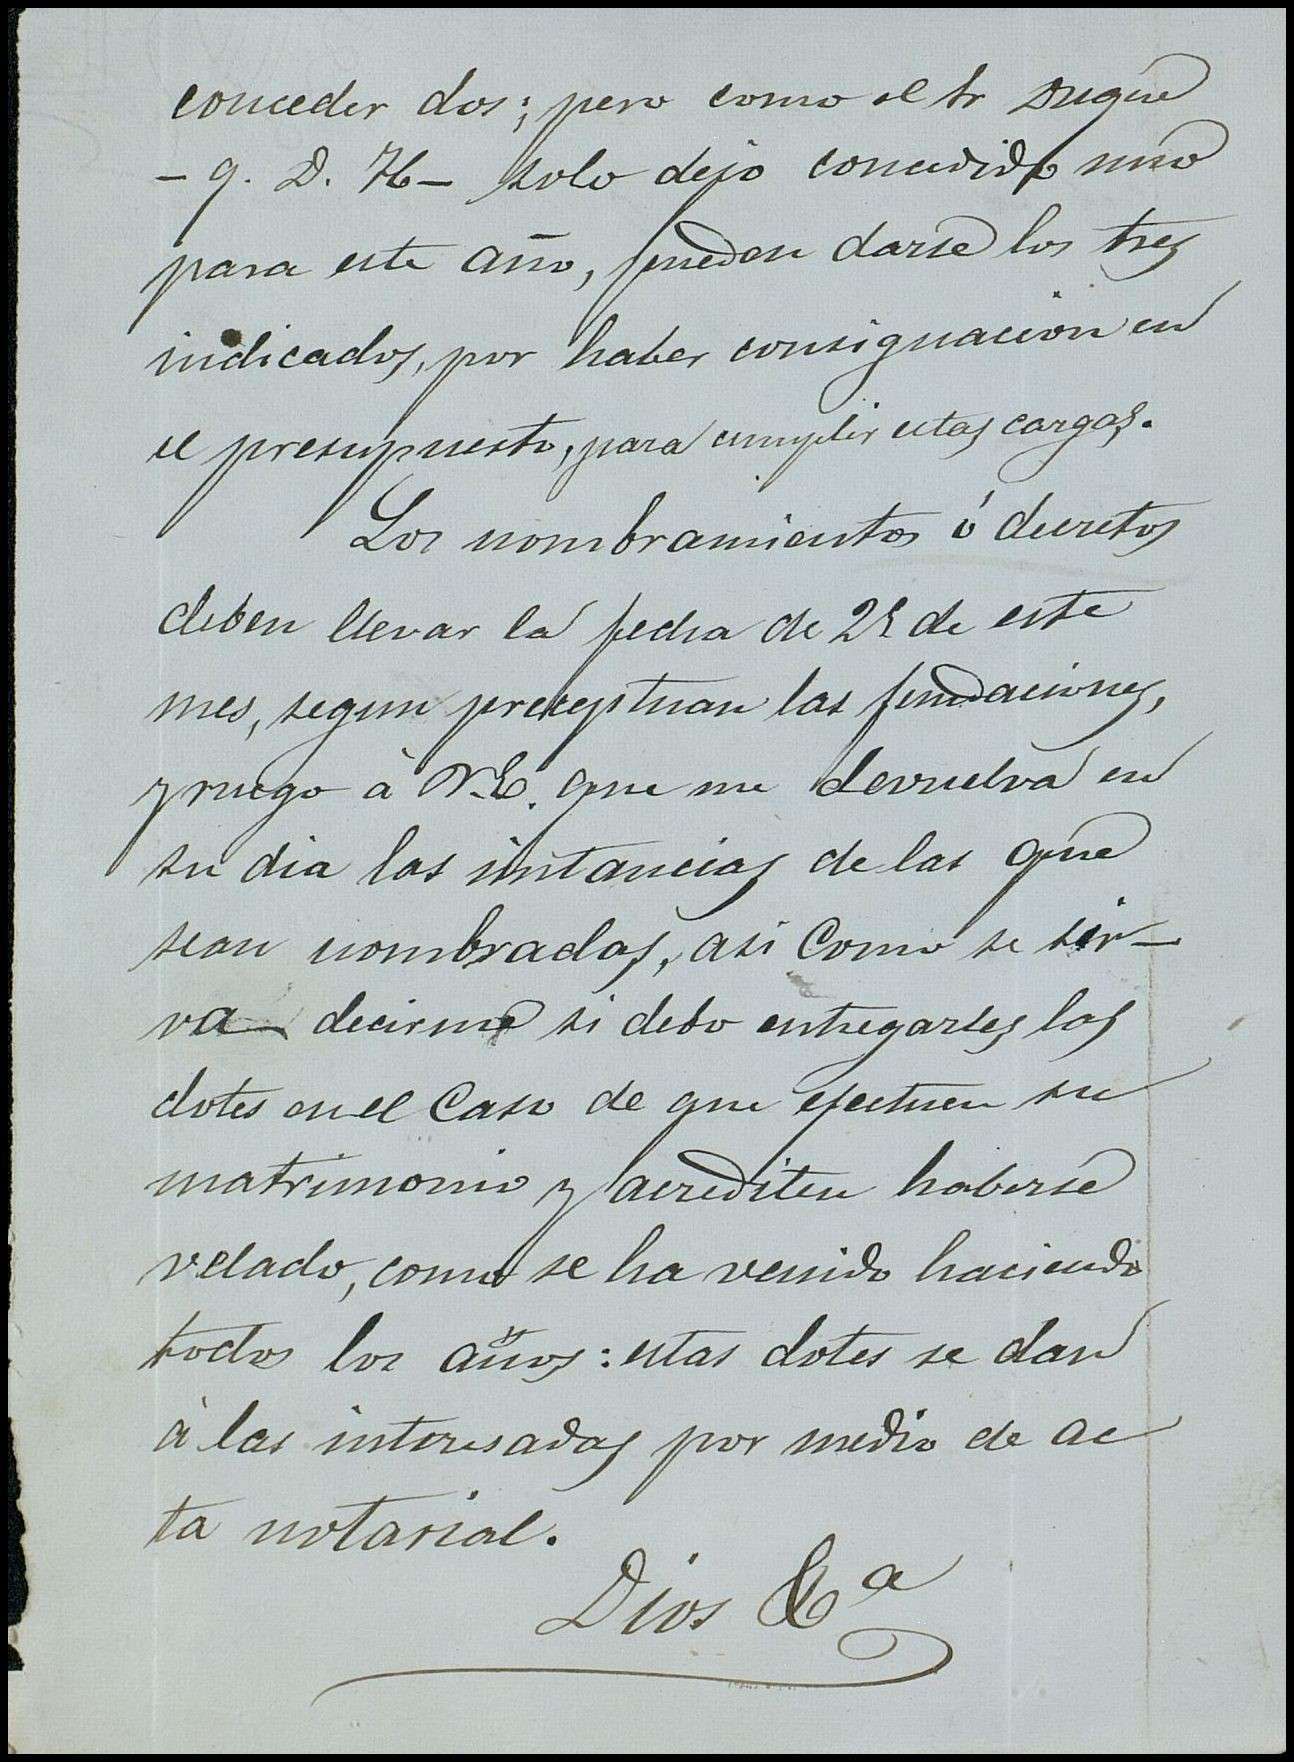 conceder dos; pero como el Sr Duque
- q. D. H - solo dejo concedido uno
para este año, pueden darse los tres
indicados, por haber consignacion en
el presupuesto, para cumplir estas cargas.
Los nombramientos ó decretos
deben llevar la fecha de 25 de este
mes, segun preceptuan las fundaciones,
y ruego à V.E. que me devuelva en
su dia las intancias de las que
sean nombradas, asi como se sir-
va decirme si debo entregarles las
dotes en el caso de que efectuen su
matrimonio y acrediten haberse
velado, como se ha venido haciendo
todos los años: estas dotes se dan
à las interesadas por medio de ac
ta notarial.
Dios &a